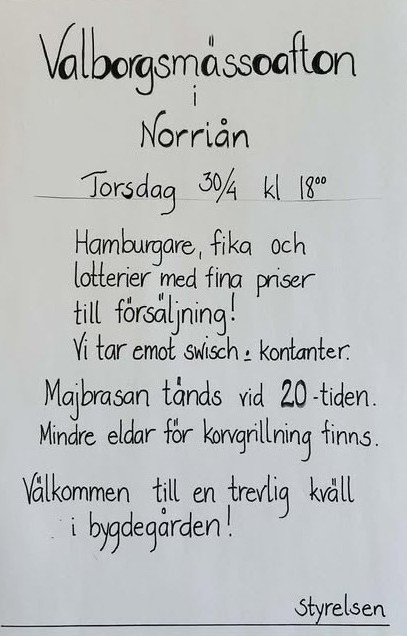 Valborgsmässoafton
i
Norriån
Torsdag 30/4 kl 18⁰⁰
Hamburgare, fika och
lotterier med fina priser
till försäljning!
Vi tar emot swish & kontanter.
Majbrasan tänds vid 20-tiden.
Mindre eldar för korvgrillning finns.
Välkommen till en trevlig kväll
i bygdegården!
Styrelsen